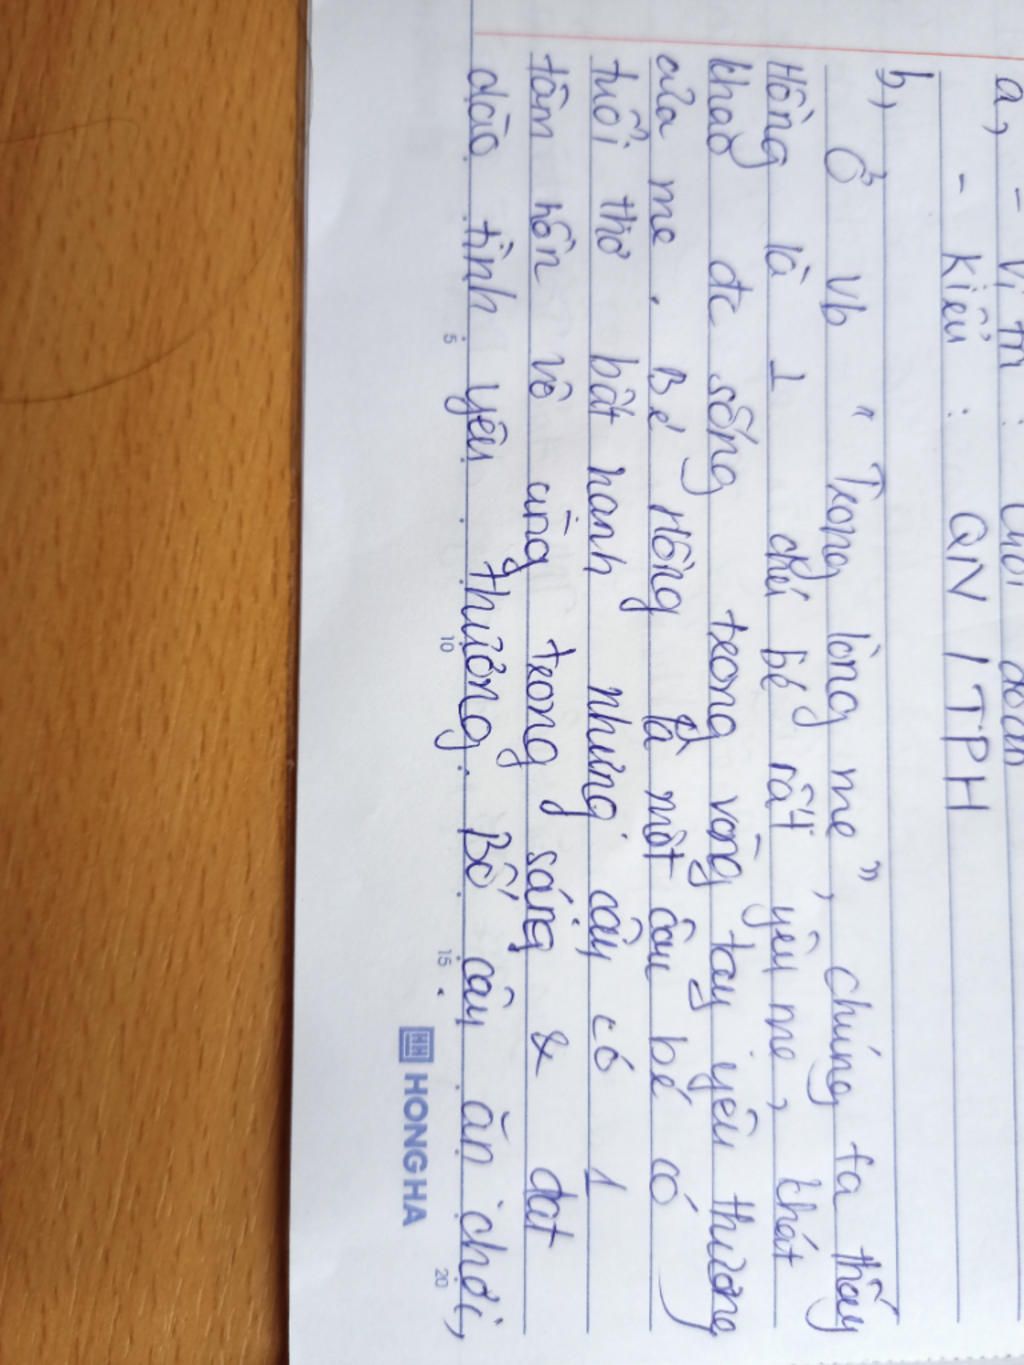 a, - Vị trí : Cuối đoạn
- Kiểu : QN / TPH
b,
Ở vb " Trong lòng mẹ ", chúng ta thấy
Hồng là 1 chú bé rất yêu mẹ, khát
khao đc sống trong vòng tay yêu thương
của mẹ. Bé Hồng là một cậu bé có
tuổi thơ bất hạnh nhưng cậu có 1
tâm hồn vô cùng trong sáng & dạt
dào tình yêu thương. Bố cậu ăn chơi,
5 10 15 20
HH HONG HA